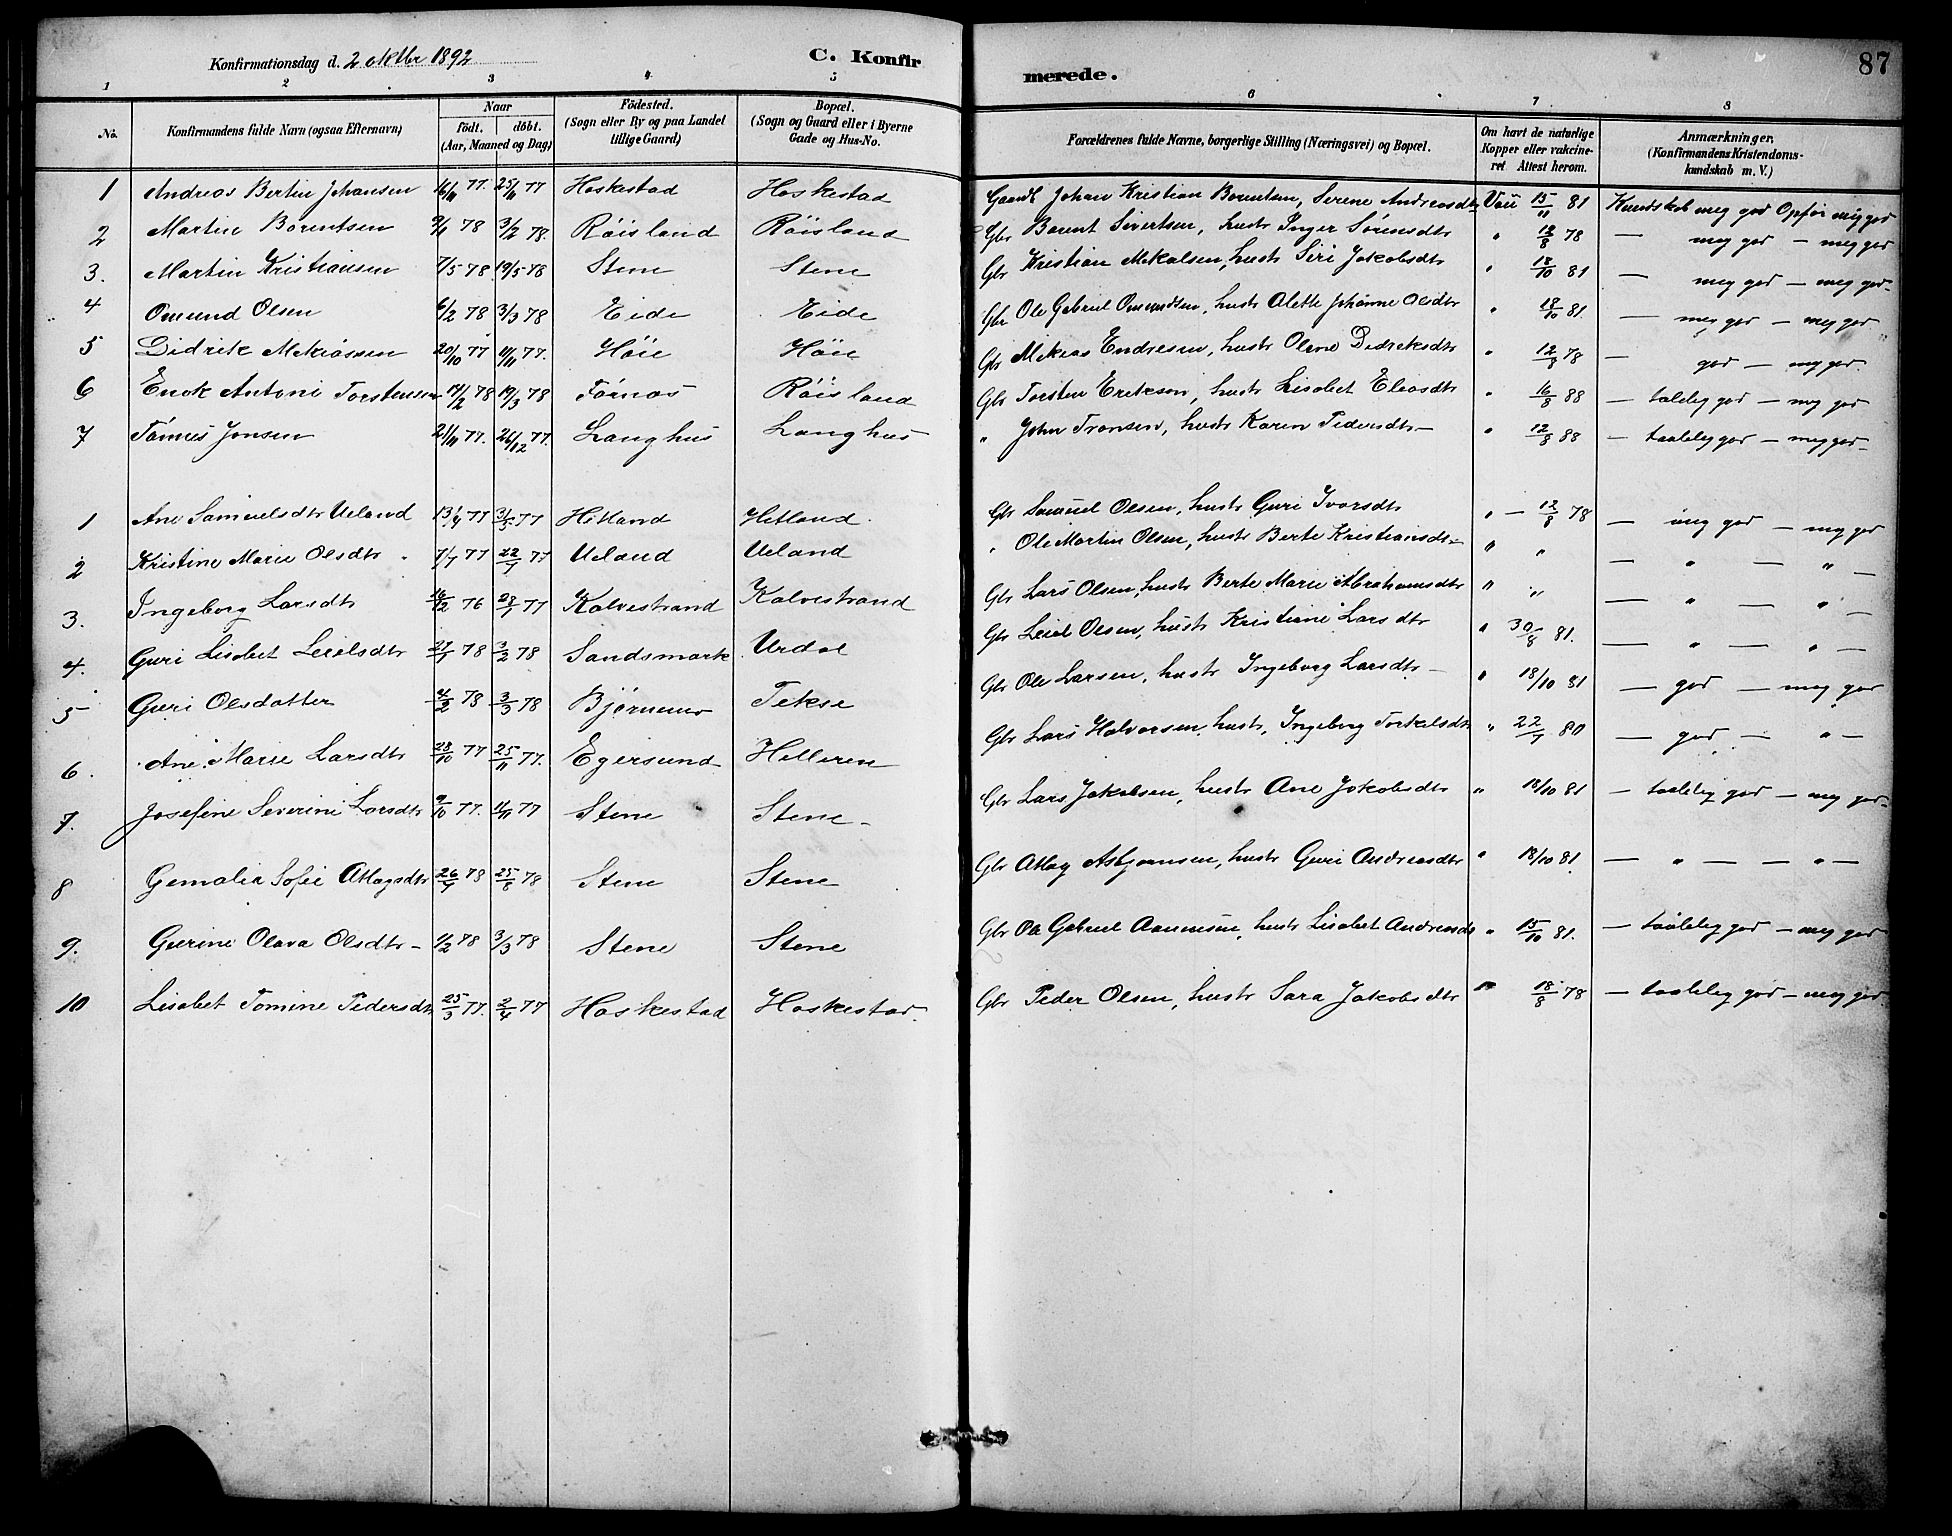 Konfirmationsdag d. 2 oktbr 1892
C. Konfirmerede.
87
1 2 3 4 5 6 7 8
No. Konfirmandens fulde Navn (ogsaa Efternavn) Naar födt. döbt. (Aar, Maaned og Dag) Födested. (Sogn eller By og paa Landet tillige Gaard) Bopæl. (Sogn og Gaard eller i Byerne Gade og Hus-No. Forældrenes fulde Navne, borgerlige Stilling (Næringsvei) og Bopæl. Om havt de naturlige Kopper eller vakcineret Attest herom. Anmærkninger, (Konfirmandens Kristendomskundskab m. V.)
1 Andreas Bertin Johansen 16/11 77. 25/11 77 Haskestad Haskestad Gaardb Johan Kristian Berentsen, Serene Andreasdtr Vac 15/11 81 Kundskab meg god Opför meg god
2 Martin Berentsen 9/1 78 3/2 78. Röisland Röisland Gbr Berent Sivertsen, hustr Inger Sörensdtr " 12/8 78 — meg god — meg god
3. Martin Kristiansen 7/5 78 19/5 78 Stene Stene Gbr Kristian Mekalsen, hustr Siri Jakobsdtr " 18/10 81 — meg god — meg god
4 Omund Olsen 6/2 78 3/3 78 Eide Eide Gbr Ole Gabriel Omundsen, hustr Olette Johanne Olsdtr " 18/10 81 — meg god — meg god
5 Didrik Mekiassen 20/10 77 11/11 77. Höie Höie Gbr Mekias Endresen, hustr Olene Didriksdtr " 12/8 78 — god — meg god
6 Enok Antoni Torstensen 17/2 78 19/3 78 Törnas Röisland Gbr Torsten Erikson, hustr Lisabet Eliasdtr " 16/8 88 — taalelig god — meg god
7 Tönnes Jonsen 21/11 77. 26/12 77. Langhus Langhus " John Tronsen, hustr Karen Pedersdtr — " 12/8 88 — taalelig god — meg god
1 Ane Samuelsdtr Ueland 13/4 77 3/5 77 Hetland Hetland. Gbr Samuel Olsen, hustr Guri Ivarsdtr " — 12/8 78 — meg god — meg god
2 Kristine Marie Olsdtr 7/7 77 22/7 77 Ueland Ueland " Ole Martin Olsen, hustr Berte Kristiansdtr " " — " — " —
3. Ingeborg Larsdtr 16/12 76 28/1 77 Kalvestrand Kalvestrand Gbr Lars Olsen, hustr Berte Marie Abrahamsdtr " " — " — " —
4. Guri Lisabet Leielsdtr 27/1 78 3/2 78 Sandsmark Urdal Gbr Leiel Olsen, hustr Kristiane Larsdtr " 30/8 81. — " — " —
5 Guri Olsdatter 4/2 78 3/3 78 Tekse Gbr Ole Larsen, hustr Ingeborg Larsdtr — " 18/10 81 — god — meg god
6. Ane Marie Larsdtr 28/10 77 25/11 77. Egersund Helleren Gbr Lars Halvorsen, hustr, Ingeborg Torkelsdtr " 22/7 80 — god — " —
7. Josefine Severine Larsdtr 9/10 77. 11/11 77 Stene Stene — Gbr Lars Jakobsen, hustr Ane Jakobsdtr " 18/10 81 — taalelig god — meg god
8 Gemalia Sofie Atlagsdtr 26/7 78 25/8 78 Stene Stene Gbr Atlag Asbjörnsen, hustr Guri Andreasdtr " 18/10 81 — " — — " —
9. Gurine Olava Olsdtr — 11/2 78 3/3 78 Stene Stene Gbr Ole Gabriel Aanensen, hustr Lisabet Andreasdtr " 15/10 81. — taalelig god — meg god
10 Lisabet Tomine Pedersdtr 25/3 77. 2/4 77 Haskestad Haskestad. Gbr Peder Olsen, hustr Sara Jakobsdtr " 18/8 78 — taalelig god — meg god